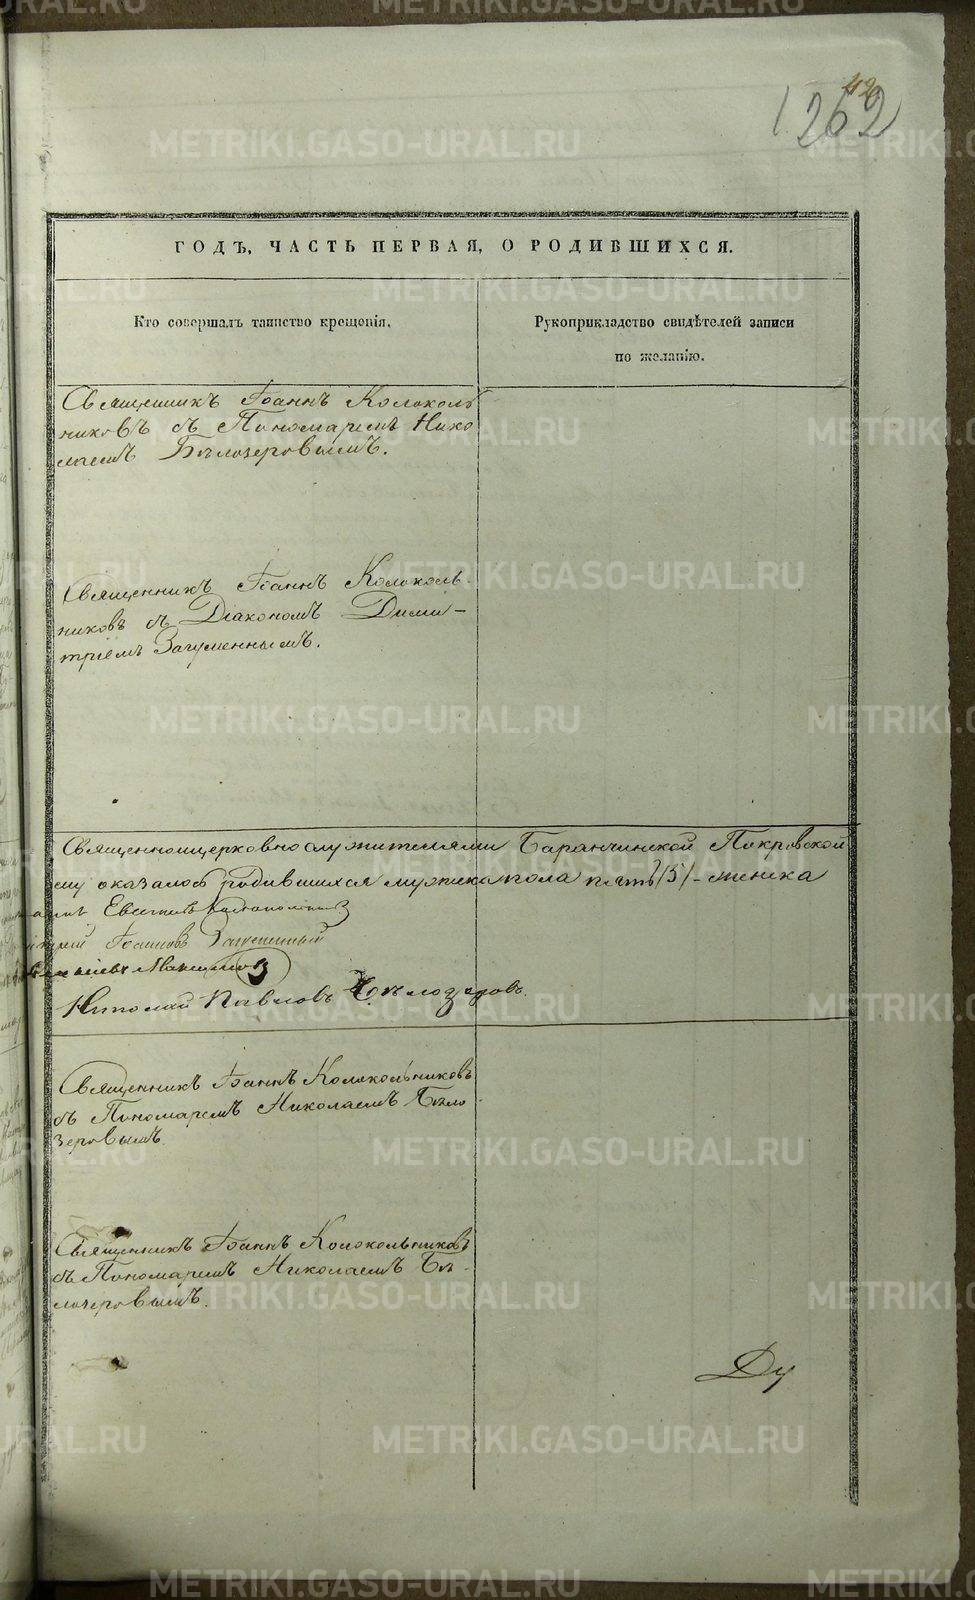 42
1262
ГОДЪ, ЧАСТЬ ПЕРВАЯ, О РОДИВШИХСЯ.
Кто совершалъ таинство крещенія.
Рукоприкладство свидѣтелей записи
по желанію.
Священникъ Іоаннъ Колоколь
никовъ съ Пономаремъ Нико
лаемъ Бѣлозеровымъ.
Священникъ Іоаннъ Колоколь-
никовъ съ Діакономъ Дими-
тріемъ Загуменнымъ.
Священноцерковнослужителями Баранчинской Покровской
му оказалось родившихся мужска пола пять /5/ - женска
Іоаннов Загуменный
Николай Павловъ Бѣлозеровъ.
Священникъ Іоаннъ Колокольниковъ
съ Пономаремъ Николаемъ Бѣло
зеровымъ.
Священникъ Іоаннъ Колокольниковъ
съ Пономаремъ Николаемъ Бѣ-
лозеровымъ.
Ду
METRIKI.GASO-URAL.RU